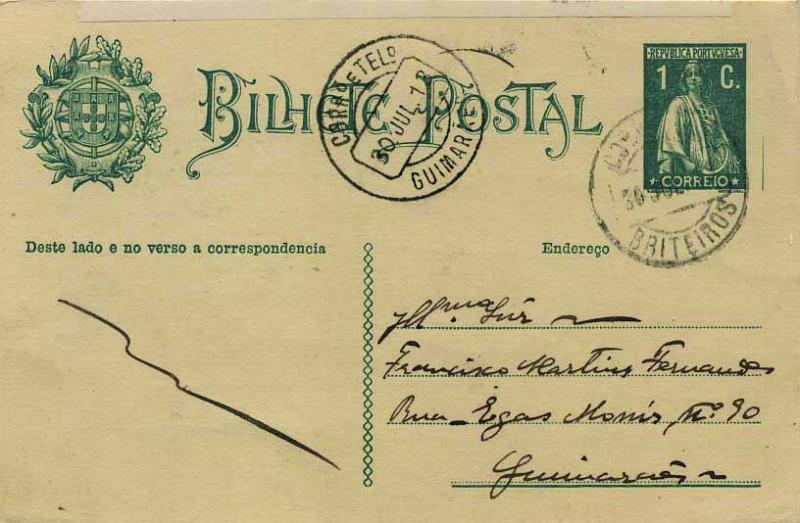 BILHETE POSTAL
REPUBLICA PORTUGUESA
1 C.
CORREIO
CORRO E TELO
30 JUL 18
GUIMARÃES
30 JUL
BRITEIROS
Deste lado e no verso a correspondencia
Endereço
Ill.mo Snr
Francisco Martins Fernandes
Rua Egas Moniz, nº 90
Guimarães